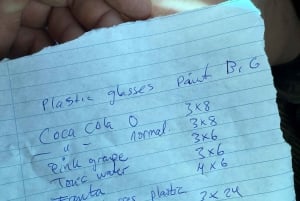 Plastic glasses Paint B, G
Coca Cola O 3x8
" - normal. 3x8
Pink grape 3x6
Tonic water 3x6
Fanta 4x6
plastic 2x24